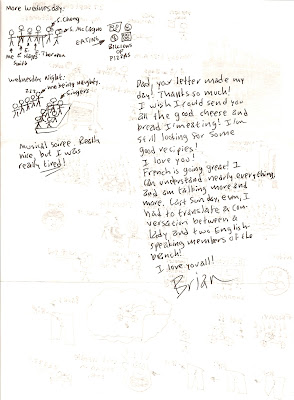 More Wednesday:
S. Chong
S. McCagno
EATING
BILLIONS OF
PIZZAS
Me
Wednesday Night:
me being naughty.
singers
Musical soiree. Really
nice, but I was
really tired!
Dad, your letter made my
day! Thanks so much!
I wish I could send you
all the good cheese and
bread I'm eating! I'm
still looking for some
good recipies!
I love you!
French is going great! I
can understand nearly everything,
and am talking more and
more. Last Sunday, even, I
had to translate a con-
versacion between a
lady and two English-
speaking members of the
branch!
I love you all!
Brian